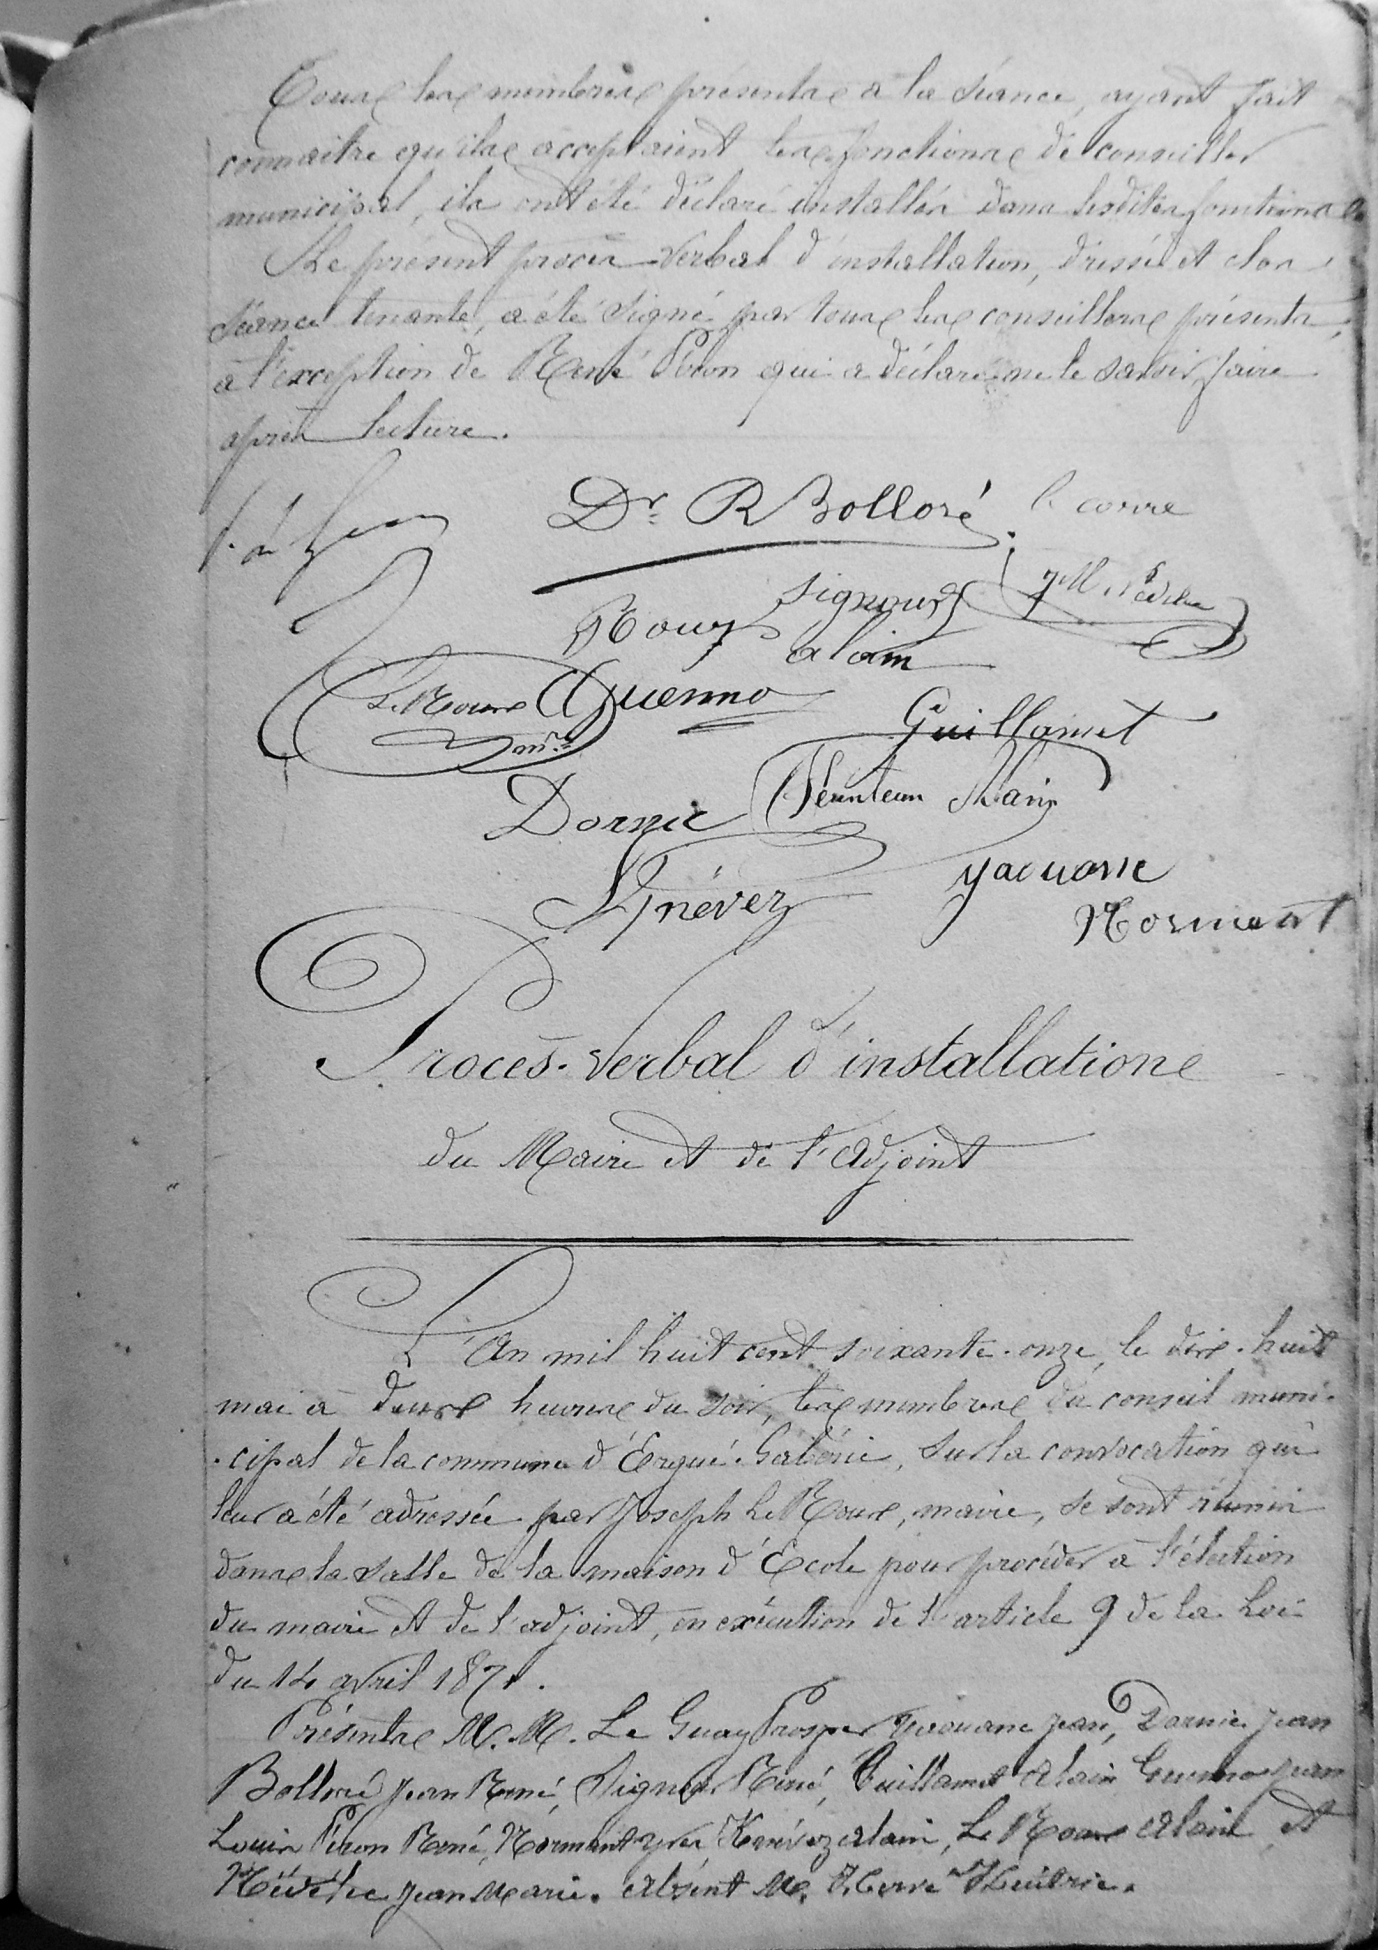 Tous les membres présents à la séance, ayant fait
connaitre qu'ils acceptaient les fonctions de conseiller
municipal, ils ont été déclaré installés dans lesdites fonctions
Le présent procès verbal d'installation, dressé et clos
séance tenante, a été signé par tous les conseillers présents,
à l'exception de René Péron qui a déclaré ne le savoir faire
après lecture.
Dr R Bolloré le corre
signour
Rouz alain
Le Roux Guenno
Guillamet
m.re
Dornic Féunteun Marie
Yaouanc
Knévez
Normant
Procès-verbal d'installation
du Maire et de l'Adjoint
L'An mil huit cent soixante-onze, le dix-huit
mai à deux heures du soir, les membres du conseil muni-
-cipal de la commune d'Ergué-Gabéric, sur la convocation qui
leur a été adressée par Joseph Le Roux, maire, se sont réunis
dans la salle de la maison d'École pour procéder à l'élection
du maire et de l'adjoint, en exécution de l'article 9 de la Loi
du 14 avril 1871.
Présents M.M. Le Guay Prosper Yaouanc Jean, Dornic Jean
Bolloré Jean René, Signour René, Guillamet Alain Guenno Jean
Louis Péron René, Normant Yves Knévez Alain, Le Roux Alain et
Nédélec Jean Marie. Absent M.